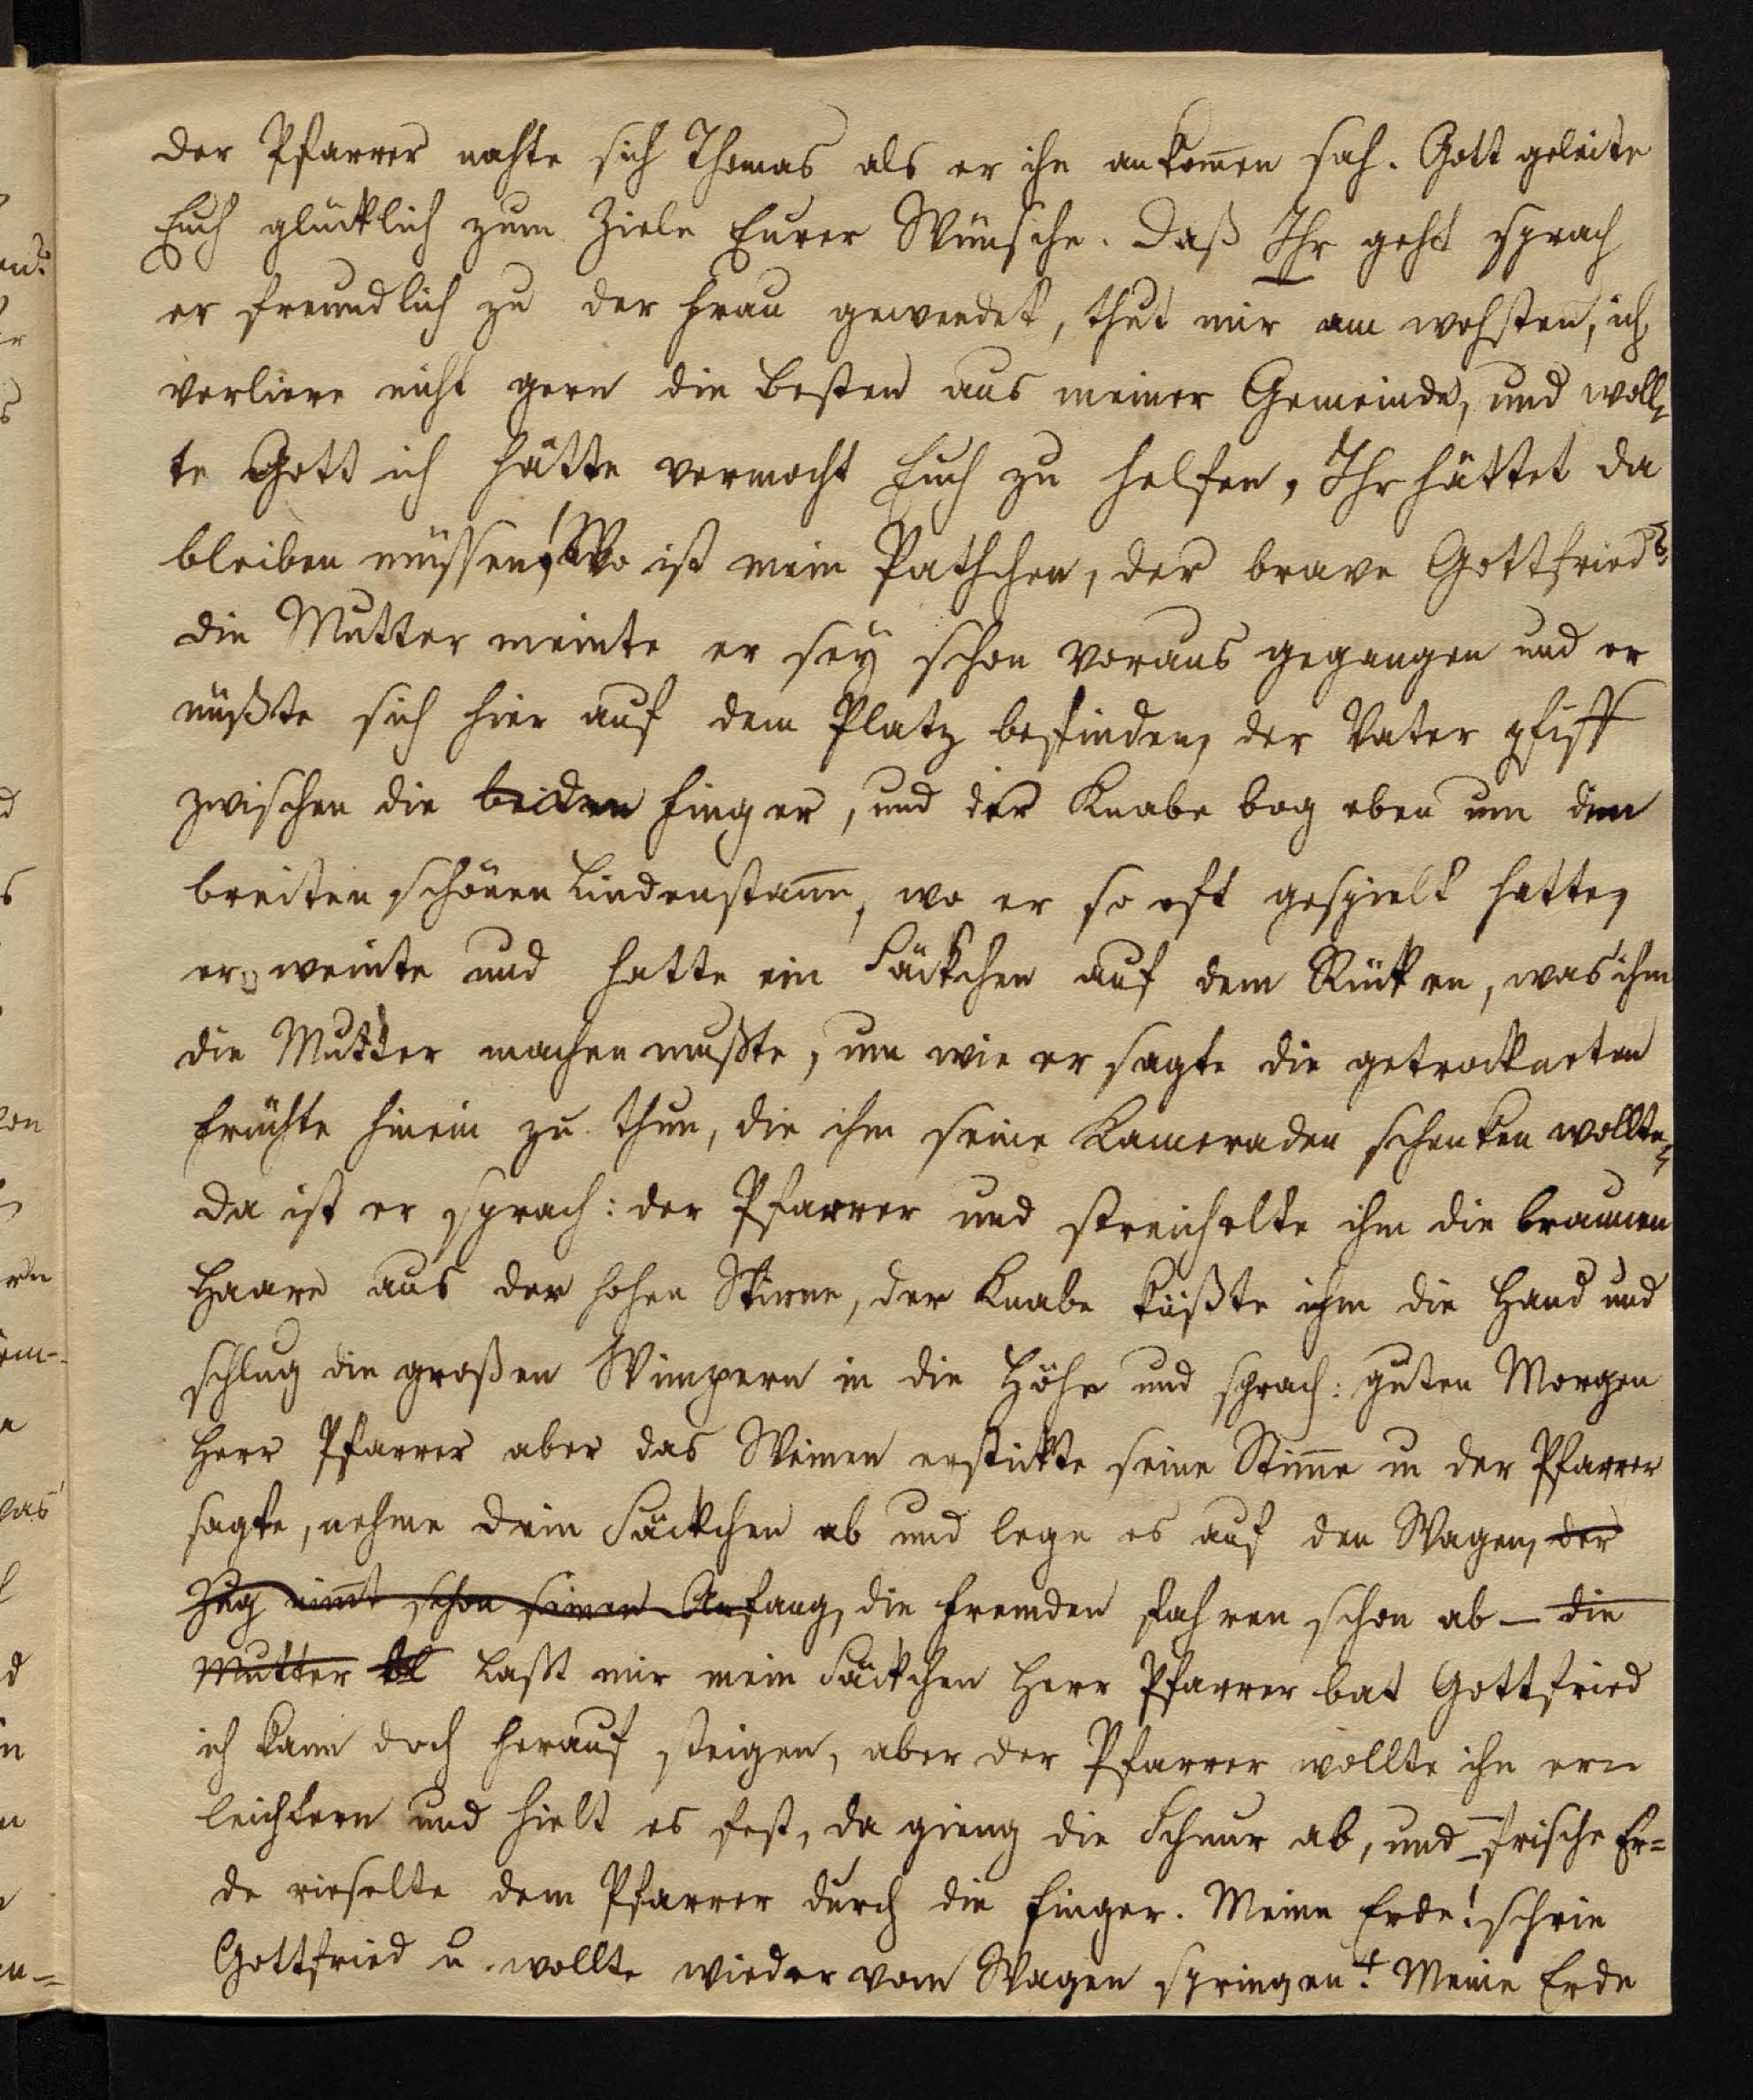 der Pfarrer nahte sich Thomas als er ihn ankom̄en sah. Gott geleite
Euch glücklich zum Ziele Eurer Wünsche. Daß Ihr geht sprach
er freundlich zu der Frau gewendet, thut mir am wehsten, ich
verliere nicht gern die besten aus meiner Gemeinde, und woll¬
te Gott ich hätte vermocht Euch zu helfen, Ihr hättet da
bleiben müssen! Wo ist mein Pathchen, der brave Gottfried?
die Mutter meinte er sey schon voraus gegangen und er
müßte sich hier auf dem Platz befinden, der Vater pfiff
zwischen die beiden Finger, und der Knabe bog eben um den
breiten schönen Lindenstam̄, wo er so oft gespielt hatte,
er weinte und hatte ein Säckchen auf dem Rücken, was ihm
die Mutter machen mußte, um wie er sagte die getrockneten
Früchte hinein zu thun, die ihm seine Kameraden schenken wollten,
da ist er sprach: der Pfarrer und streichelte ihm die braunen
Haare aus der hohen Stirne, der Knabe küßte ihm die Hand und
schlug die großen Wimpern in die Höhe und sprach: guten Morgen
Herr Pfarrer aber das Weinen erstickte seine Stim̄e u der Pfarrer
sagte, nehme dein Säckchen ab und lege es auf den Wagen, der
Zug nim̄t schon seinen Anfang, die Fremden fahren schon ab — die
Mutter laßt mir mein Säckchen Herr Pfarrer bat Gottfried
ich kann doch herauf steigen, aber der Pfarrer wollte ihn er¬
leichtern und hielt es fest, da gieng die Schnur ab, und frische Er=
de rieselte dem Pfarrer durch die Finger. Meine Erde! schrie
Gottfried u wollte wieder vom Wagen springen! Meine Erde